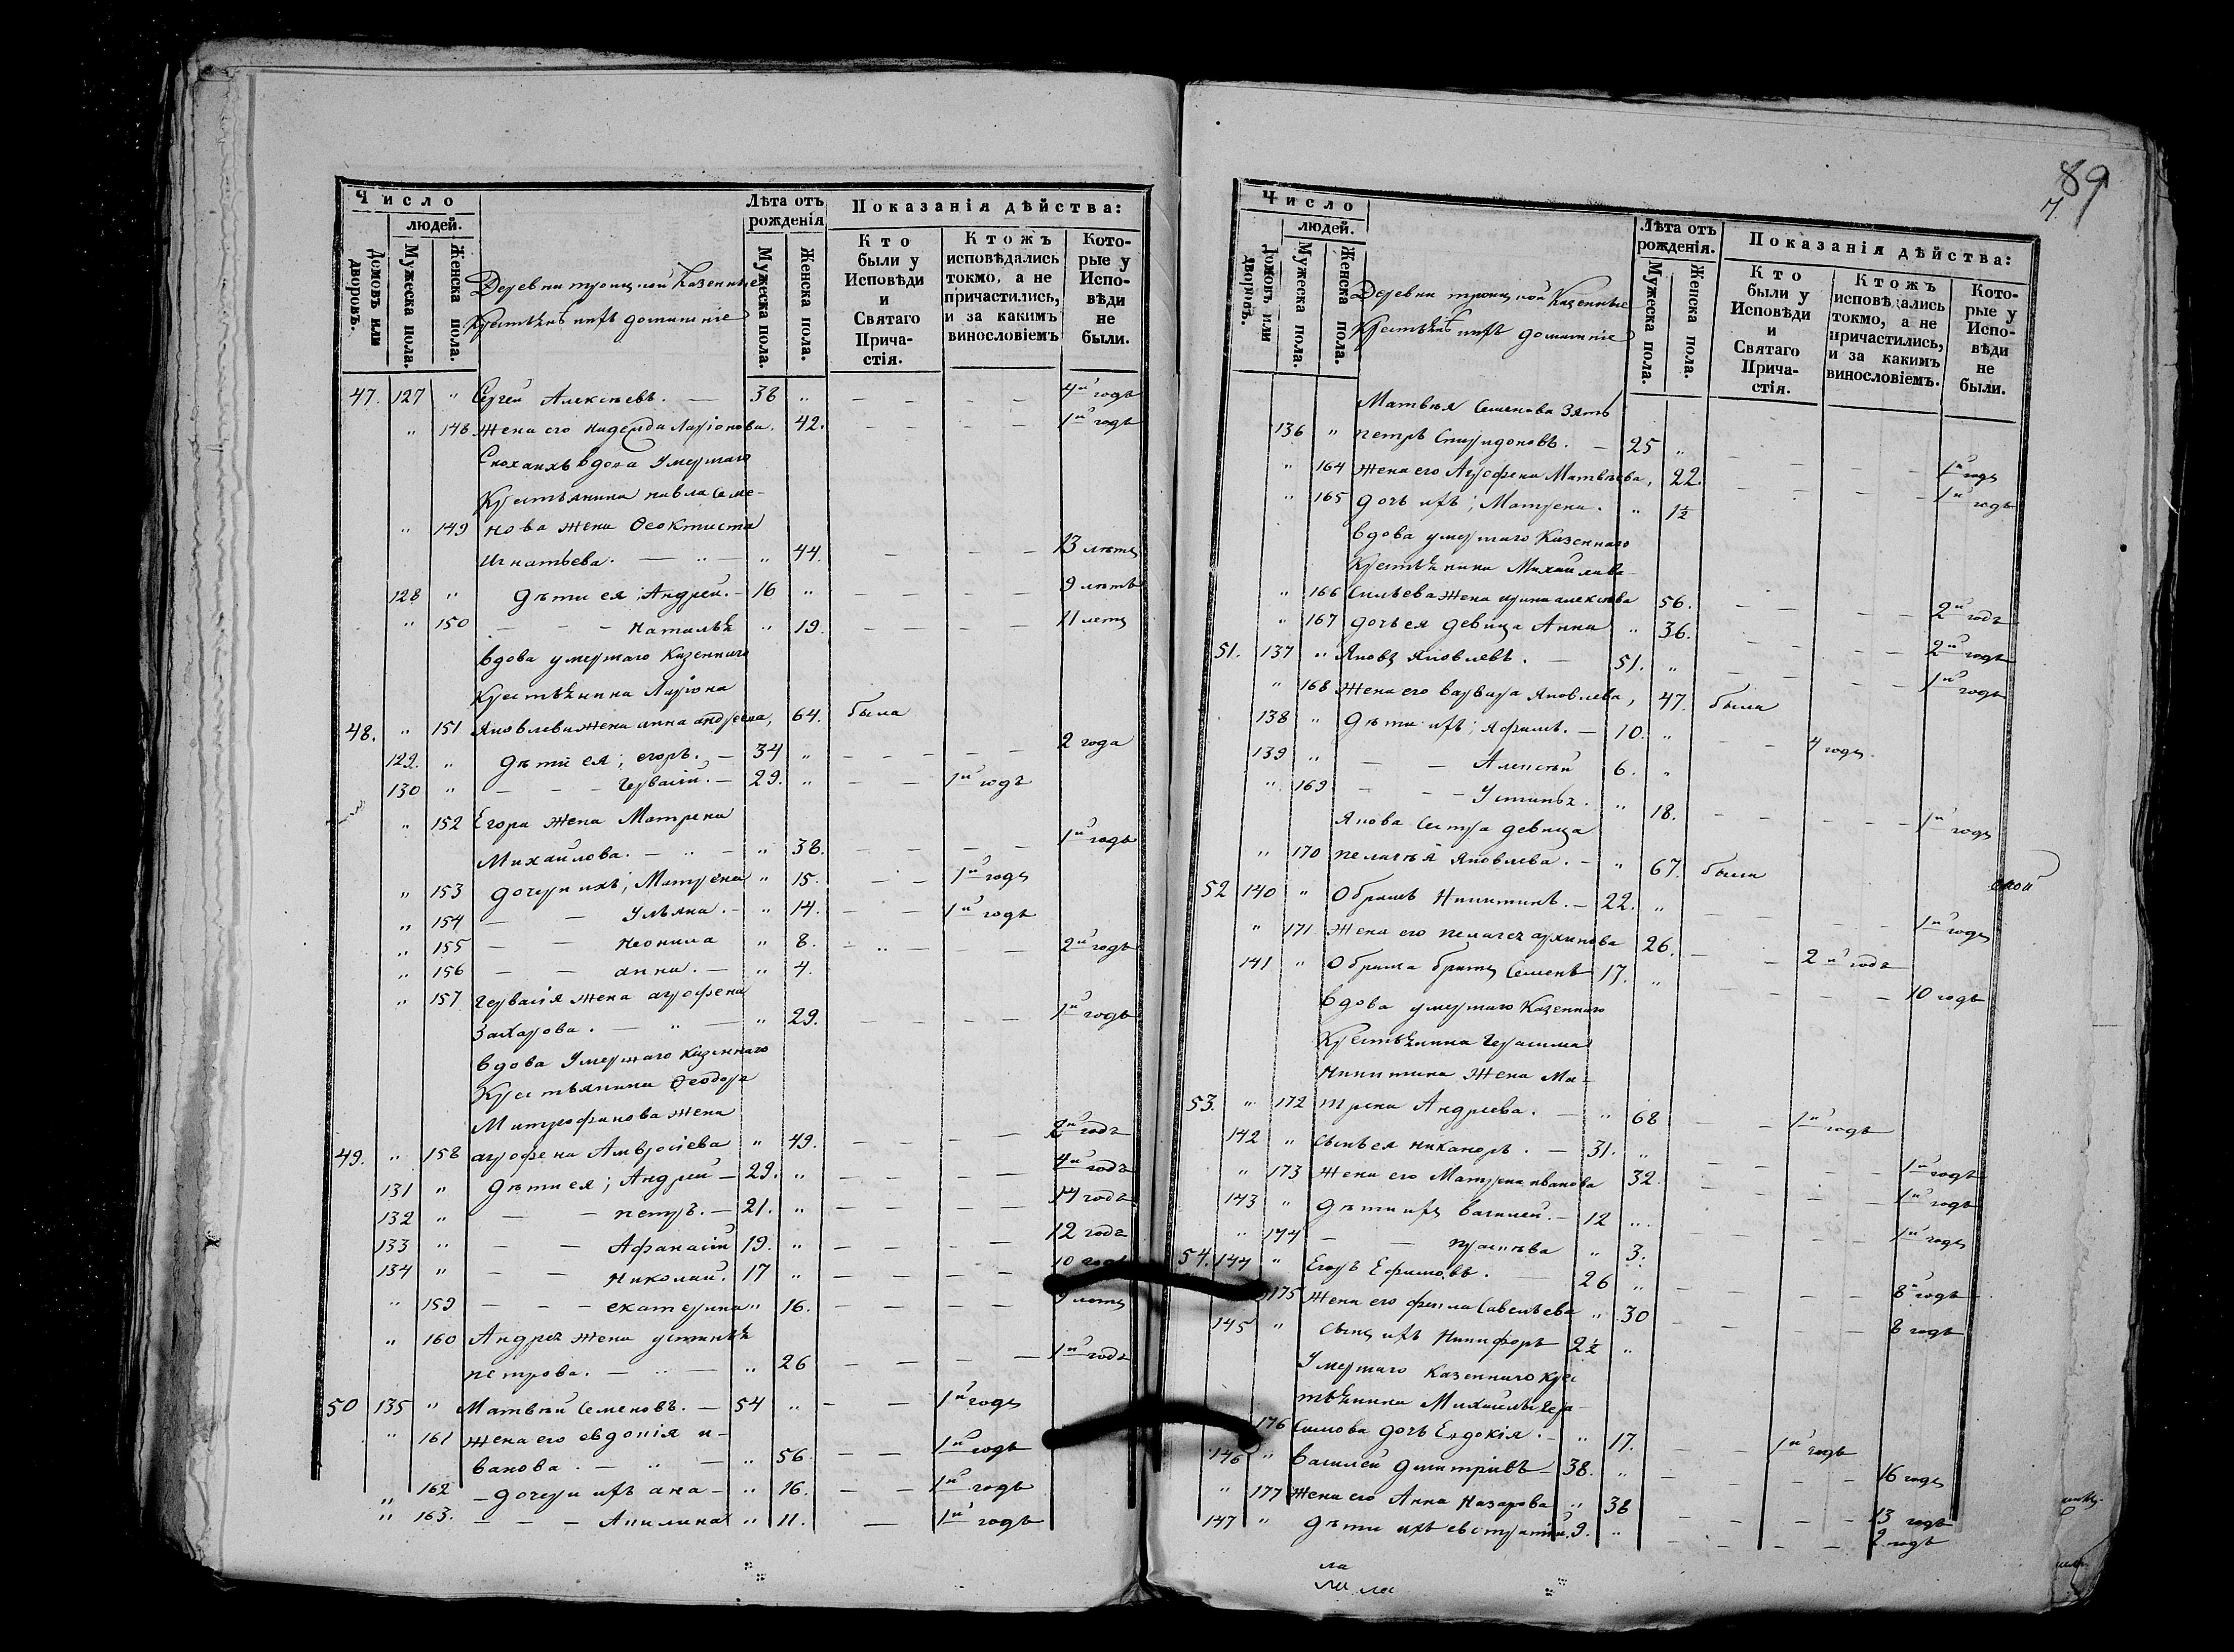 Число
людей.
Домовъ или дворовъ.
Мужеска пола.
Женска пола.
Деревни троицкой Казенные
Крестьянѣ ихъ домашніе
Лѣта отъ рожденія
Мужеска пола.
Женска пола.
Показанія дѣйства:
Кто были у Исповѣди и Святаго Прича-стія.
Ктожъ исповѣдались токмо, а не причастились, и за какимъ винословіемъ
Кото-рые у Испо-вѣди не были.
47. 127 " Сергей Алексѣевъ. — 38 " — — — — 4й годъ
" 148 Жена его надежда Ларіонова. 42. — — — — 1й годъ
Сноха ихъ вдова умершаго
Крестьянина павла Семе-
" 149 нова жена Ѳеоктиста
Игнатьева. — " — " 44. — — — 13 летъ
128 " дѣти ея; Андрей. — 16 " — — — — 9 летъ
" 150 — — — Наталья " 19. — — — — 11 летъ
вдова умершаго Казеннаго
Крестьянина Ларіона
48. " 151 Яковлева жена анна андреева, 64. была
129. " дѣти ея; егоръ. — 34 " — — — — — 2 года
130 " — — — Герва́сій. — 29. " — — 1й годъ
" 152 Егора жена Матрена
Михайлова. — " — " 38. — — — — 1й годъ
" 153 дочери ихъ; Матрена " 15. — — 1й годъ
" 154 — — Ульяна. — " 14. — — 1й годъ
" 155 — — Неонила " 8. — " — — — 2й годъ
" 156 — — анна. — " 4.
" 157 Гервасія жена агрофена
Захарова. — " — " 29. — — — — 1й годъ
вдова Умершаго Казеннаго
Крестьянина Ѳеодора
Митрофанова жена
49. " 158 агрофена Амвросіева " 49. — — — — 2й годъ
131 " дѣти ея; Андрей — 29. " — — — — 4й годъ
132 " — — петръ. — 21. " — — — — — 14 годъ
133 " — — Афанасій 19. " — — — — 12 годъ
134 " — — Николай. 17 " — — — — 10 годъ
" 159 — — — екатерина " 16. — — — — 9 летъ
" 160 Андрея жена устинья
петрова. — " — " 26 — — — — 1й годъ
50 135 " Матвей Семеновъ. — 54 " — — 1й годъ
" 161 Жена его евдокія и-
ванова. — " — " 56. — — 1й годъ
" 162 — дочери ихъ ана — " 16. — — 1й годъ
" 163. — — — Акилина " 11. — 1й годъ
89
Число
людей.
Домовъ или дворовъ.
Мужеска пола.
Женска пола.
Деревни троицкой Казенные
Крестьянѣ ихъ домашніе
Лѣта отъ рожденія.
Мужеска пола.
Женска пола.
Показанія дѣйства:
Кто были у Исповѣди и Святаго Прича-стія.
Ктожъ исповѣдались токмо, а не причастились, и за какимъ винословіемъ.
Кото-рые у Испо-вѣди не были.
Матвея Семенова Зять
136 " петръ Спиридоновъ. — 25 " — — — — 1й годъ
" 164 жена его Агрофена Матвеева, 22. — — — — 1й годъ
" 165 дочь ихъ; Матрена. " 1½
вдова умершаго Казеннаго
Крестьянина Михаила Ва-
" 166 сильева жена ирина алексеева 56. — — — — 2й годъ
" 167 дочь ея девица Анна " 36. — — — — 2й годъ
51. 137 " Яковъ Яковлевъ. — 51. " — — — — 1й годъ
" 168 Жена его варвара Яковлева, 47. была
138 " дѣти ихъ; Яфимъ. — 10. " — — 4 годъ.
139 " — — Алексѣй 6. "
" 169 — — — Устинья. " 18. — — — — — 1й годъ
Якова Сестра девица
" 170 пелагѣя Яковлева. — " 67. была
52 140 " Обрамъ Никитинъ. — 22. " — — — — 1й годъ
" 171 Жена его пелагея архипова 26. — — 2й годъ
141 " Обрама братъ Семенъ 17. " — — — — 10 годъ
вдова умершаго Казеннаго
Крестьянина Герасима
Никитина Жена Ма-
53. " 172 трена Андреева. — " 68 — — 1й годъ
142 " сынъ ея никаноръ. — 31. " — — — — 1й годъ
" 173 Жена его Матрена иванова 32. — — — — 1й годъ
143 " дѣти ихъ василей. — 12 " — — — — 1й годъ
" 174 — — " 3.
54. 144 " Егоръ Ефимовъ. — 26 " — — — — 8й годъ
175 Жена его фекла Савельева " 30 — — — — 8 годъ
145 " сынъ ихъ Никифоръ 2½ "
Умершаго Казеннаго Крес
тьянина Михайлы Гера-
176 симова дочь Евдокія. — " 17. — — 1й годъ
146 " василей дмитріевъ — 38. " — — — 16 годъ
" 177 Жена его Анна Назарова " 38 — — — — 13 годъ
147 " дѣти ихъ евстратій. 9. " — — — — 2 годъ